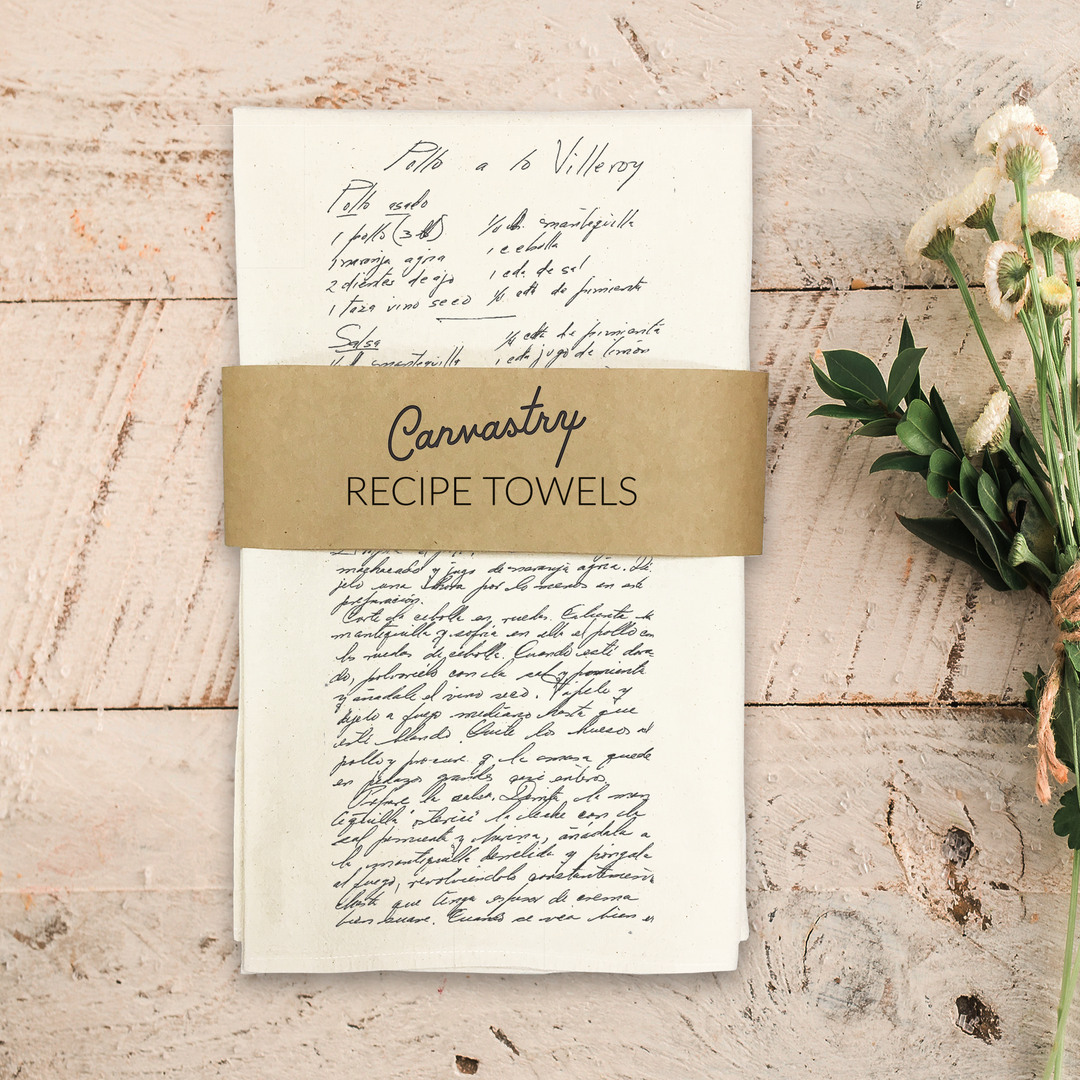 Pollo a la Villeroy
Pollo asado
1 pollo (3 lb) ¼ lb. mantequilla
1 naranja agria 1 cebolla
2 dientes de ajo 1 cda. de sal
1 taza vino seco ¼ cdta de pimienta
Salsa ¼ cdta de pimienta
mantequilla 1 cda jugo de limón
Canvastry
RECIPE TOWELS
machacado y jugo de naranja agria. Dé
jelo una hora por lo menos en esta
preparación.
Corte la cebolla en ruedas. Caliente la
mantequilla y sofría en ella el pollo con
las ruedas de cebolla. Cuando esté dora
do, polvoréelo con la sal y pimienta
y añádale el vino seco. Tápelo y
déjelo a fuego mediano hasta que
esté blando. Quite los huesos al
pollo y procure q. la masa quede
en pedazos grandes casi enteros.
Prepare la salsa. Derrita la man
tequilla, la leche con la
sal pimienta y harina, añádala a
la mantequilla derretida y póngala
al fuego, revolviéndola constantemente
hasta que tenga espesor de crema
bien suave. Cuando se vea bien